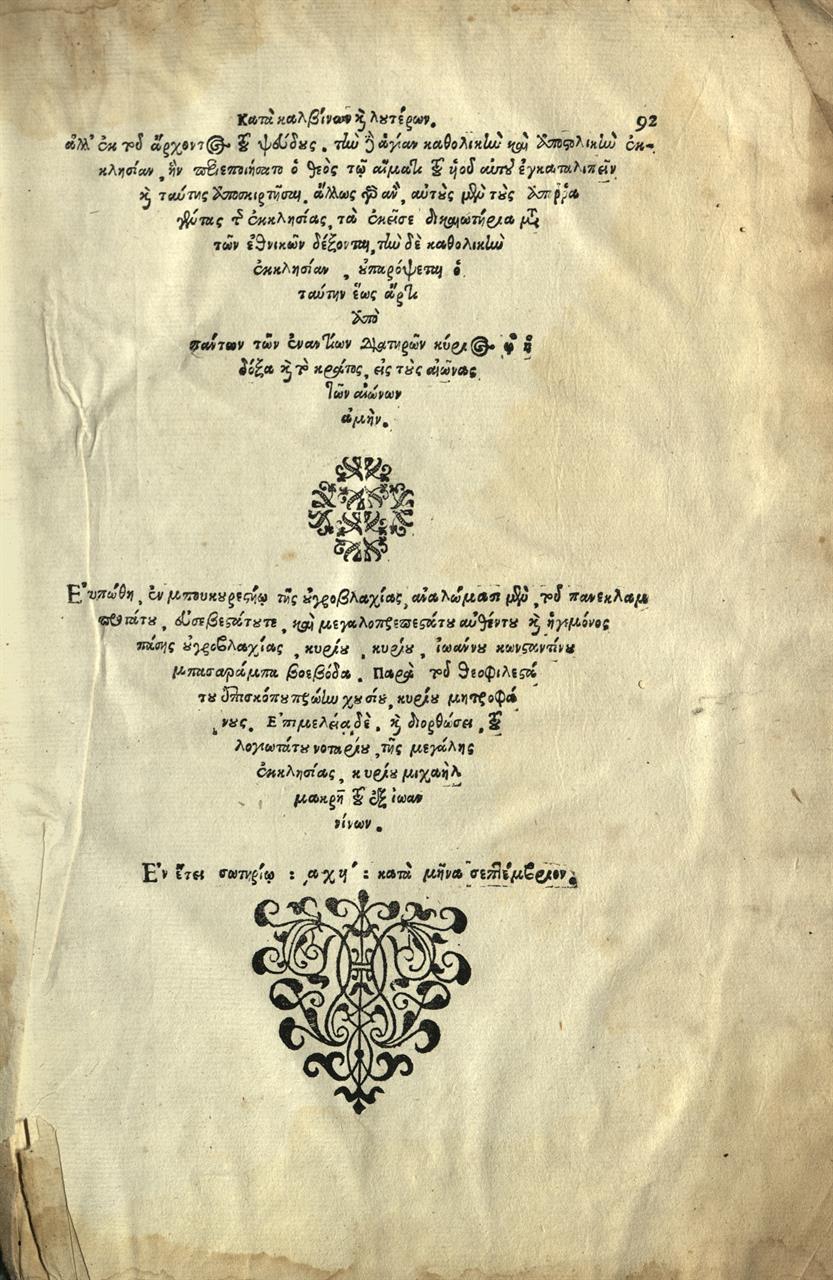 Κατὰ καλβίνων κ̀ λουτέρων. 92
ἀλλ' ἐκ τοῦ ἄρχοντος τοῦ ψεύδους. τὴν γὰρ ἁγίαν καθολικὴν καὶ ἀποστολικὴν ἐκ-
κλησίαν, ἣν περιεποιήσατο ὁ θεὸς τῷ αἵματι τοῦ υἱοῦ αὐτοῦ ἐγκαταλιπεῖν
κ̀ ταύτης ἀποσκιρτῆσαι, ἄλλως αὐτοὺς μὲν τοὺς
τῆς ἐκκλησίας, τὰ ἐκεῖσε δικαιωτήρια μετὰ
τῶν ἐθνικῶν δέξονται, τὴν δὲ καθολικὴν
ἐκκλησίαν, ὁ
ταύτην ἕως ἄρτι
ἀπὸ
πάντων τῶν ἐναντίων διατηρῶν κύριος ᾧ ἡ
δόξα κ̀ τὸ κράτος, εἰς τοὺς αἰῶνας
τῶν αἰώνων
ἀμὴν.
Ἐτυπώθη, ἐν μπουκουρεστίῳ τῆς οὑγροβλαχίας, ἀναλώμασι μὲν, τοῦ πανεκλαμ
προτάτου, εὐσεβεστάτουτε, καὶ μεγαλοπρεπεστάτου αὐθέντου κ̀ ἡγεμόνος
πάσης οὑγροβλαχίας, κυρίου, κυρίου, ἰωάννου κωνσταντίνου
μπασαράμπα βοεβόδα. Παρὰ τοῦ θεοφιλεστά
του ἐπισκόπου πρώην χουσίου, κυρίου μητροφά
νους. Ἐπιμελείᾳ δὲ, κ̀ διορθώσει, τοῦ
λογιωτάτου νοταρίου, τῆς μεγάλης
ἐκκλησίας, κυρίου μιχαὴλ
μακρῆ τοῦ ἐξ ἰωαν
νίνων.
Ἐν ἔτει σωτηρίῳ : ͵αχϟ΄ : κατὰ μῆνα σεπτέμβριον.